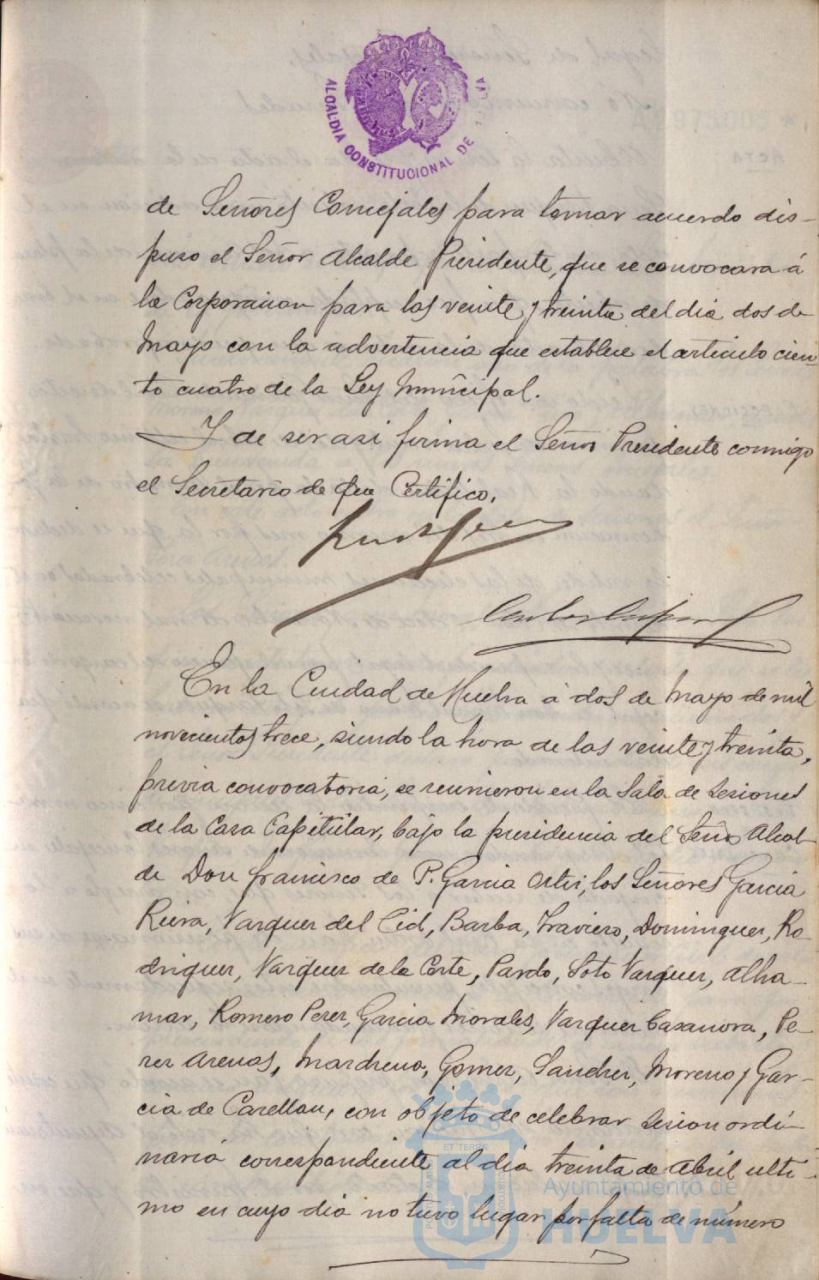 ALCALDIA CONSTITUCIONAL DE
de Señores Concejales para tomar acuerdo dis-
puso el Señor Alcalde Presidente, que se convocara á
la Corporacion para las veinte y treinta del dia dos de
Mayo con la advertencia que establece el articulo cien-
to cuatro de la Ley Municipal.
Y de ser asi firma el Señor Presidente conmigo
el Secretario de que Certifico.
En la Ciudad de Huelva á dos de Mayo de mil
novecientos trece, siendo la hora de las veinte y treinta,
previa convocatoria, se reunieron en la Sala de Sesiones
de la Casa Capitular, bajo la presidencia del Señor Alcal-
de Don Francisco de P. Garcia los Señores Garcia
Riera, Vazquez del Cid, Barba, Traviezo, Dominguez, Ro-
driguez, Vazquez de la Corte, Pardo, Soto Vazquez, Alha-
mar, Romero Perez, Garcia Morales, Vazquez Casanova, Pe-
rez Arenas, Mardreno, Gomez, Sanchez, Moreno y Gar-
cia de Carellan, con objeto de celebrar sesion ordi-
naria correspondiente al dia treinta de Abril ulti-
mo en cuyo dia no tuvo lugar por falta de número
Ayuntamiento de
HUELVA